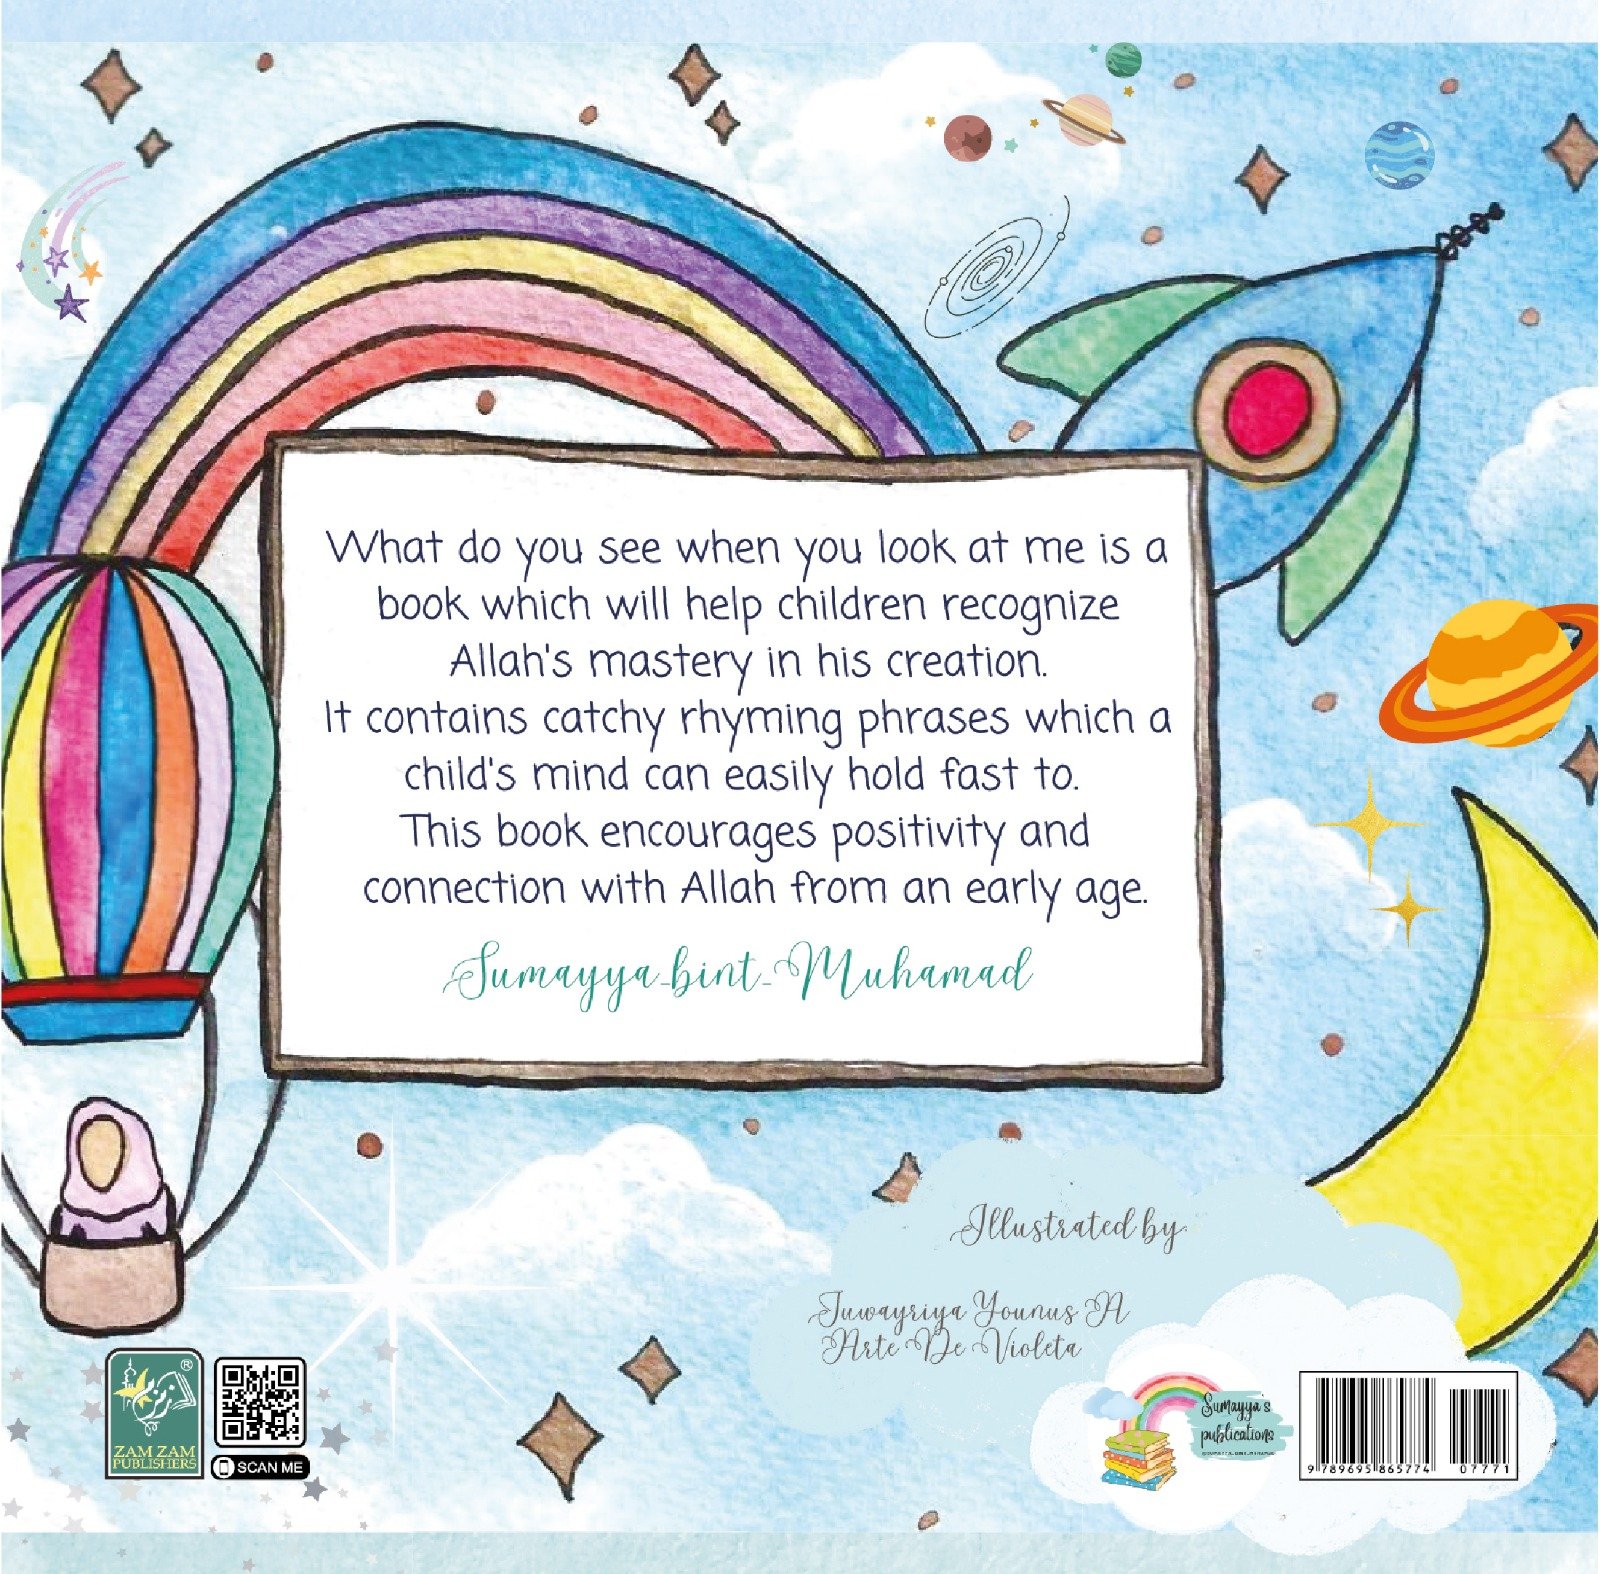 What do you see when you look at me is a
book which will help children recognize
Allah's mastery in his creation.
It contains catchy rhyming phrases which a
child's mind can easily hold fast to.
This book encourages positivity and
connection with Allah from an early age.
Sumayya-bint-Muhamad
Illustrated by:
Juwayriya Younus A
Arte De Violeta
®
ZAM ZAM
PUBLISHERS
SCAN ME
Sumayya's
publications
9 789695 865774
07771